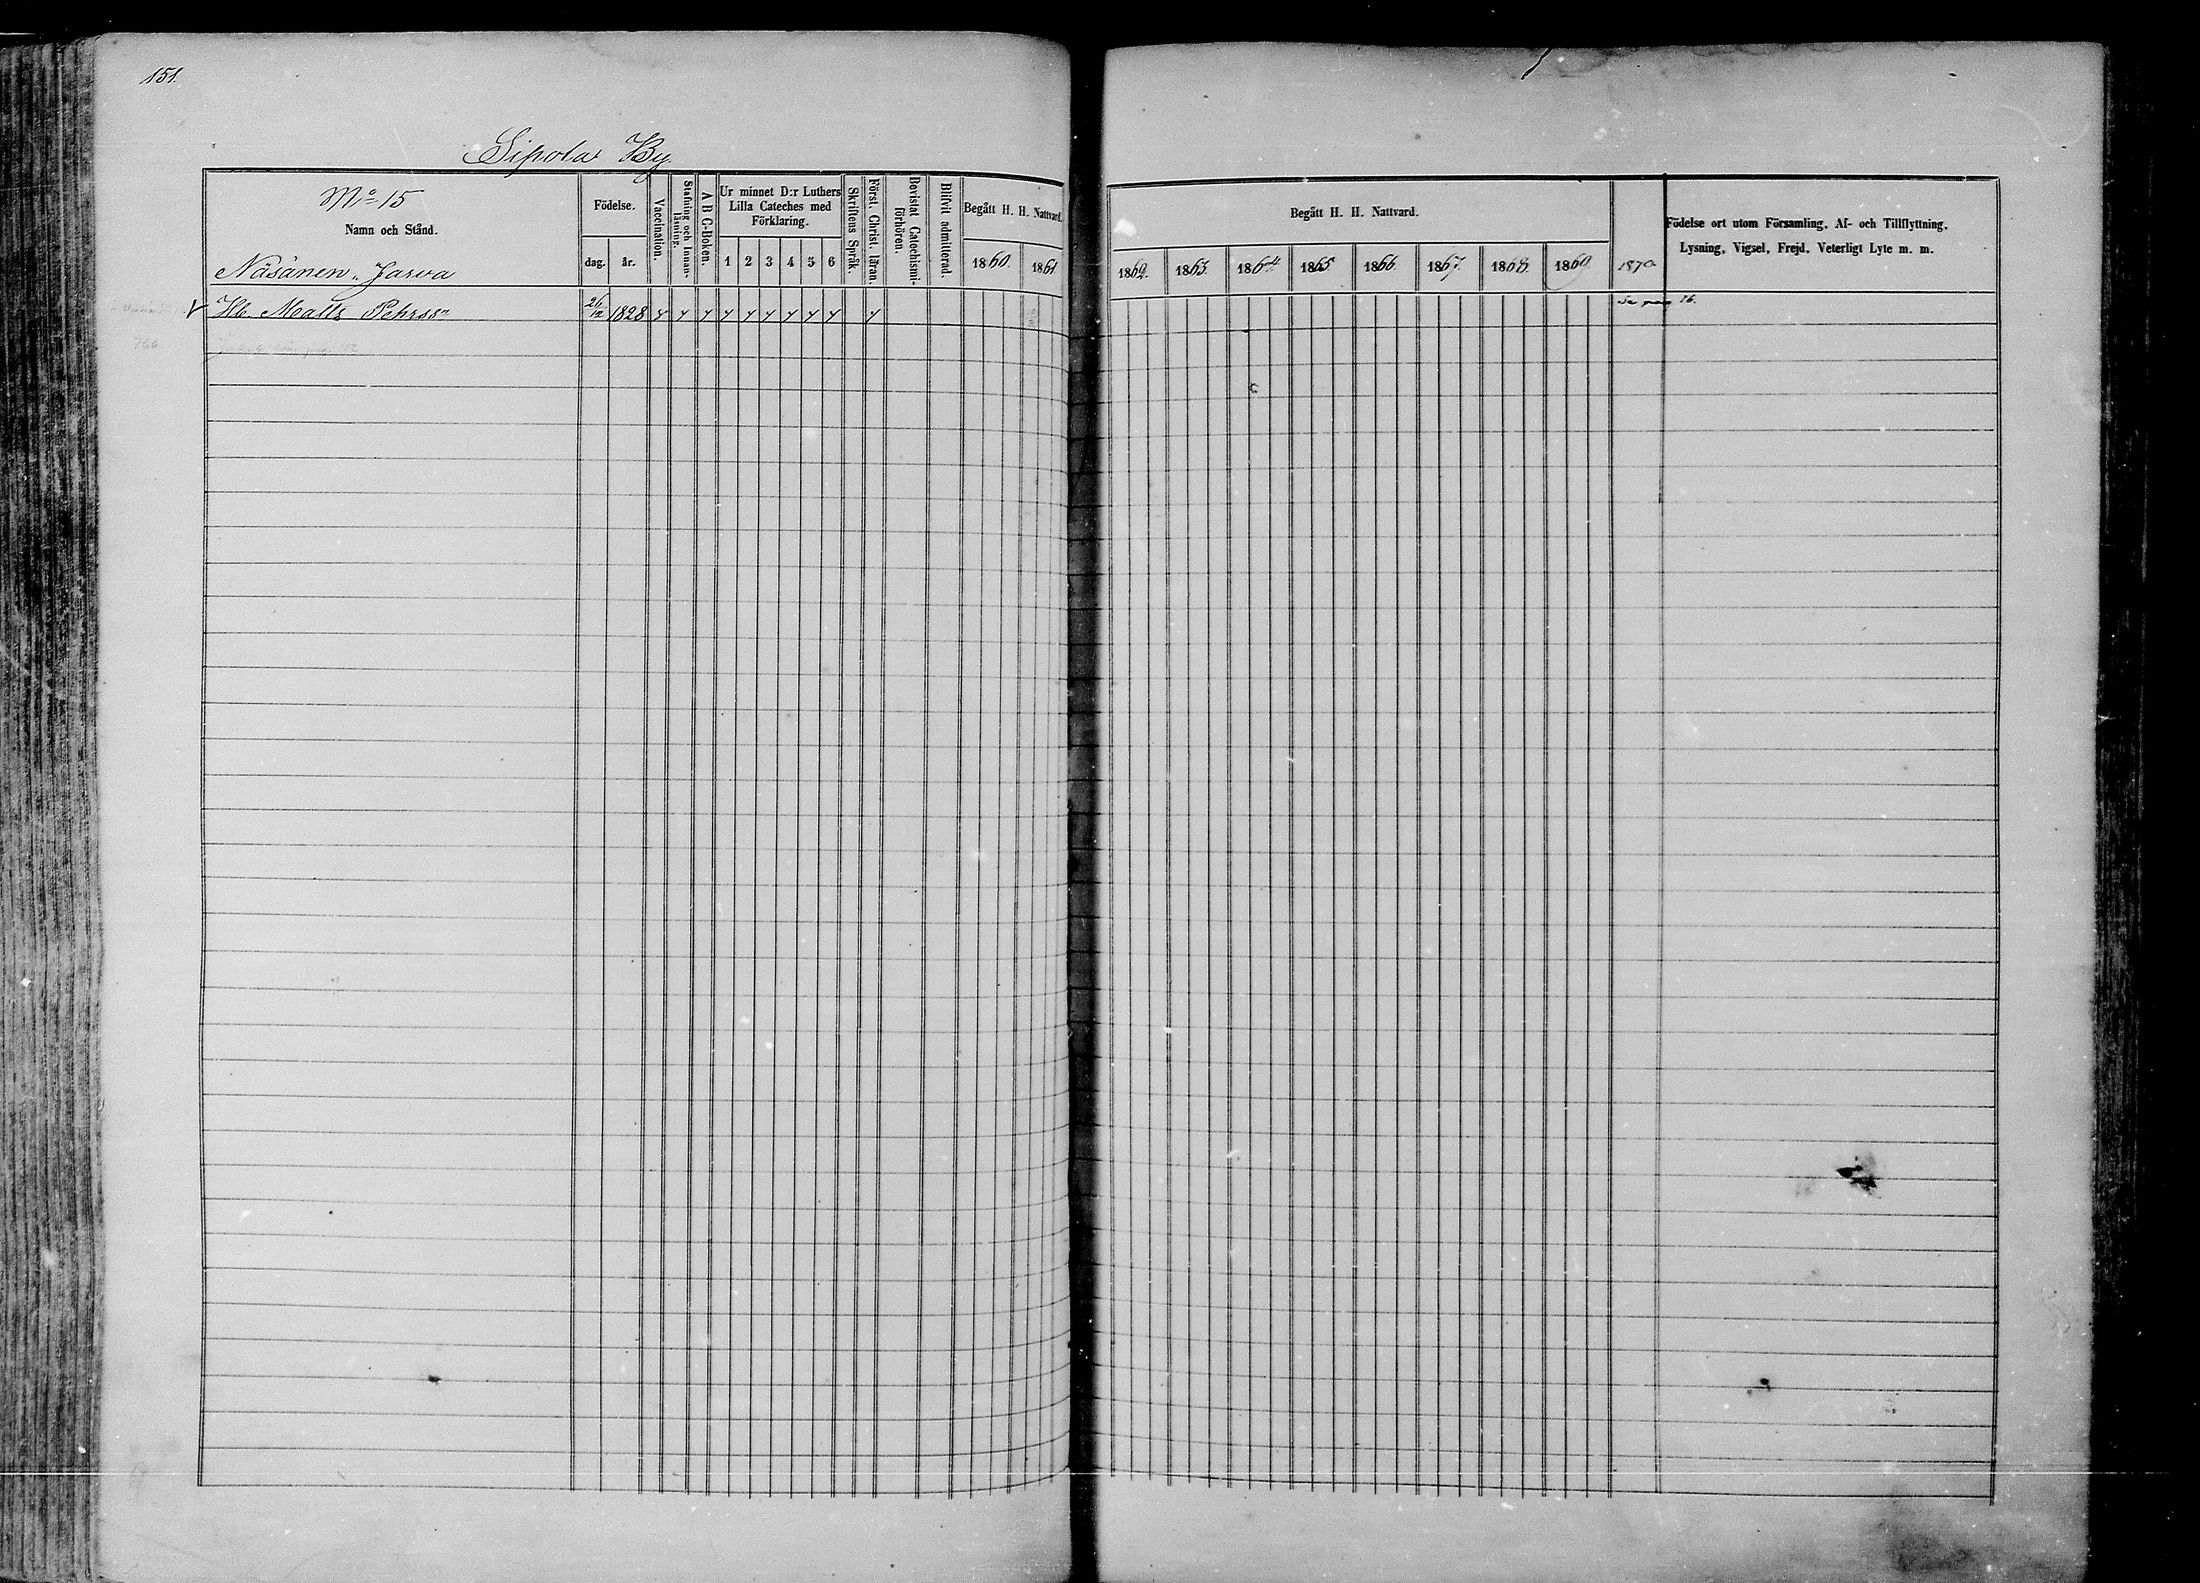 151.
Sipola By
No 15
Namn och Stånd.
Näsänen „ Jarva
Födelse.
dag. år.
Vaccination.
Stafning och Innanläsning.
A B C-Boken.
Ur minnet D:r Luthers
Lilla Cateches med
Förklaring.
1 2 3 4 5 6
Skriftens Språk.
Först. Christ. läran.
Bevistat Catechismi-
förhören.
Blifvit admitterad.
Begått H. H. Nattvard.
1860. 1861
Hb. Matts Pehrssn 26/12 1828
Begått H. H. Nattvard.
1862. 1863. 1864 1865 1866. 1867. 1868. 1869 1870
Födelse ort utom Församling, Af- och Tillflyttning,
Lysning, Vigsel, Frejd, Veterligt Lyte m. m.
Se pag 16.